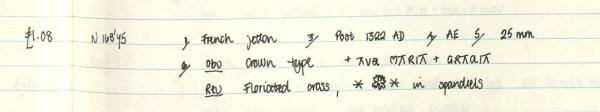 £1.08 N 168'45 1/ French jetton 3/ Post 1322 AD 4/ AE 5/ 25 mm
6/ Obv Crown type + AVE MARIA + GRACIA
Rev Floriated cross, * ❁ * in spandrels